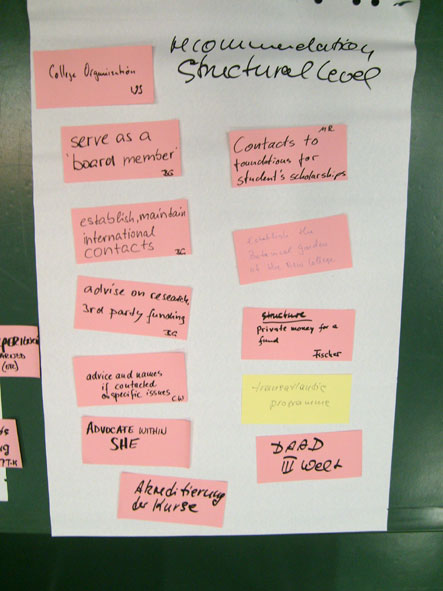 recommendation
Structural level
College Organisation
US
serve as a
'board member'
IG
establish, maintain
international
contacts
IG
advise on research,
3rd party funding
IG
advice and names
if contacted
on specific issues
CW
ADVOCATE WITHIN
SHE
Akreditierung
der Kurse
MR
Contacts to
foundations for
student's scholarships
establish the
Botanical garden
of the New College
structure
Private money for a
fund
Fischer
transatlantic
programme
DAAD
III Welt